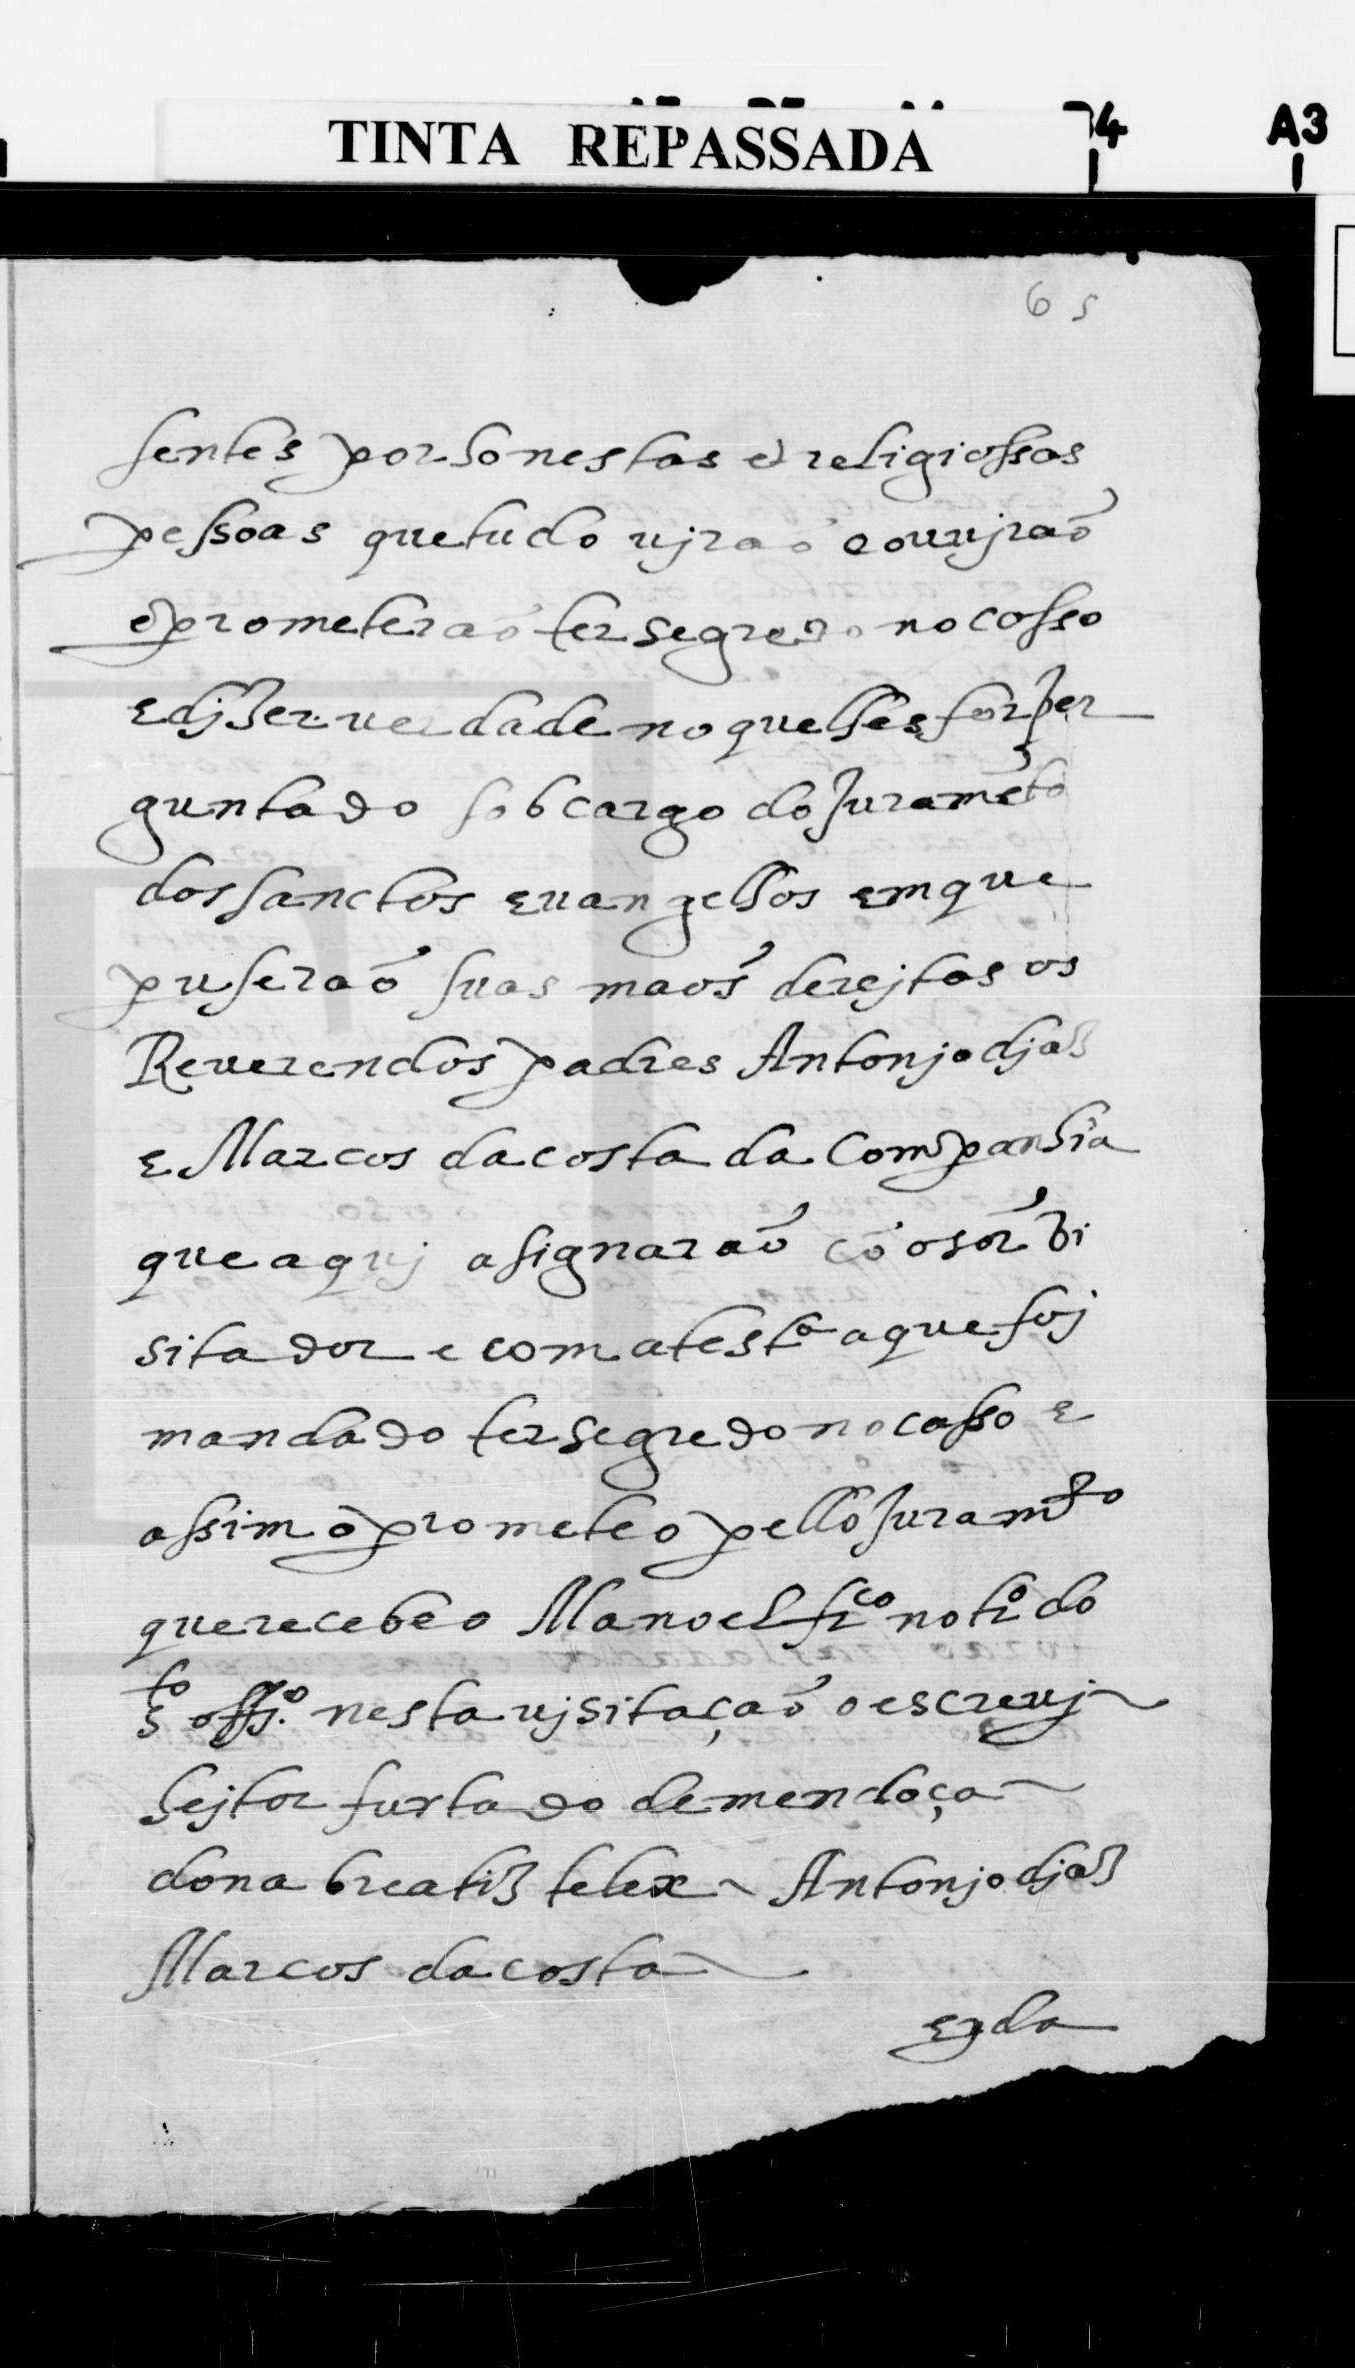 TINTA REPASSADA
74
A3
65
sentes por honestas e religiossas
pessoas que tudo vjraõ e ouvjraõ
e prometeraõ ter segredo no cosso
e djzer verdade no que lhes for per
guntado sob cargo do Juramẽto
dos sanctos evangelhos em que
puseraõ suas maõs derejtas os
Reverendos padres Antonjo djaz
e Marcos da costa da Companhia
que aquj asignaraõ cõ o sõr Vi
sitador e com a testª a que foj
mandado ter segredo no casso e
assim o prometeo pello Juramto
que recebeo Manoel frco notro do
sto offjº nesta vjsitaçaõ o escrevj
hejtor furtado de mendoça
dona breatiz telex Antonjo djaz
Marcos da costa
E da